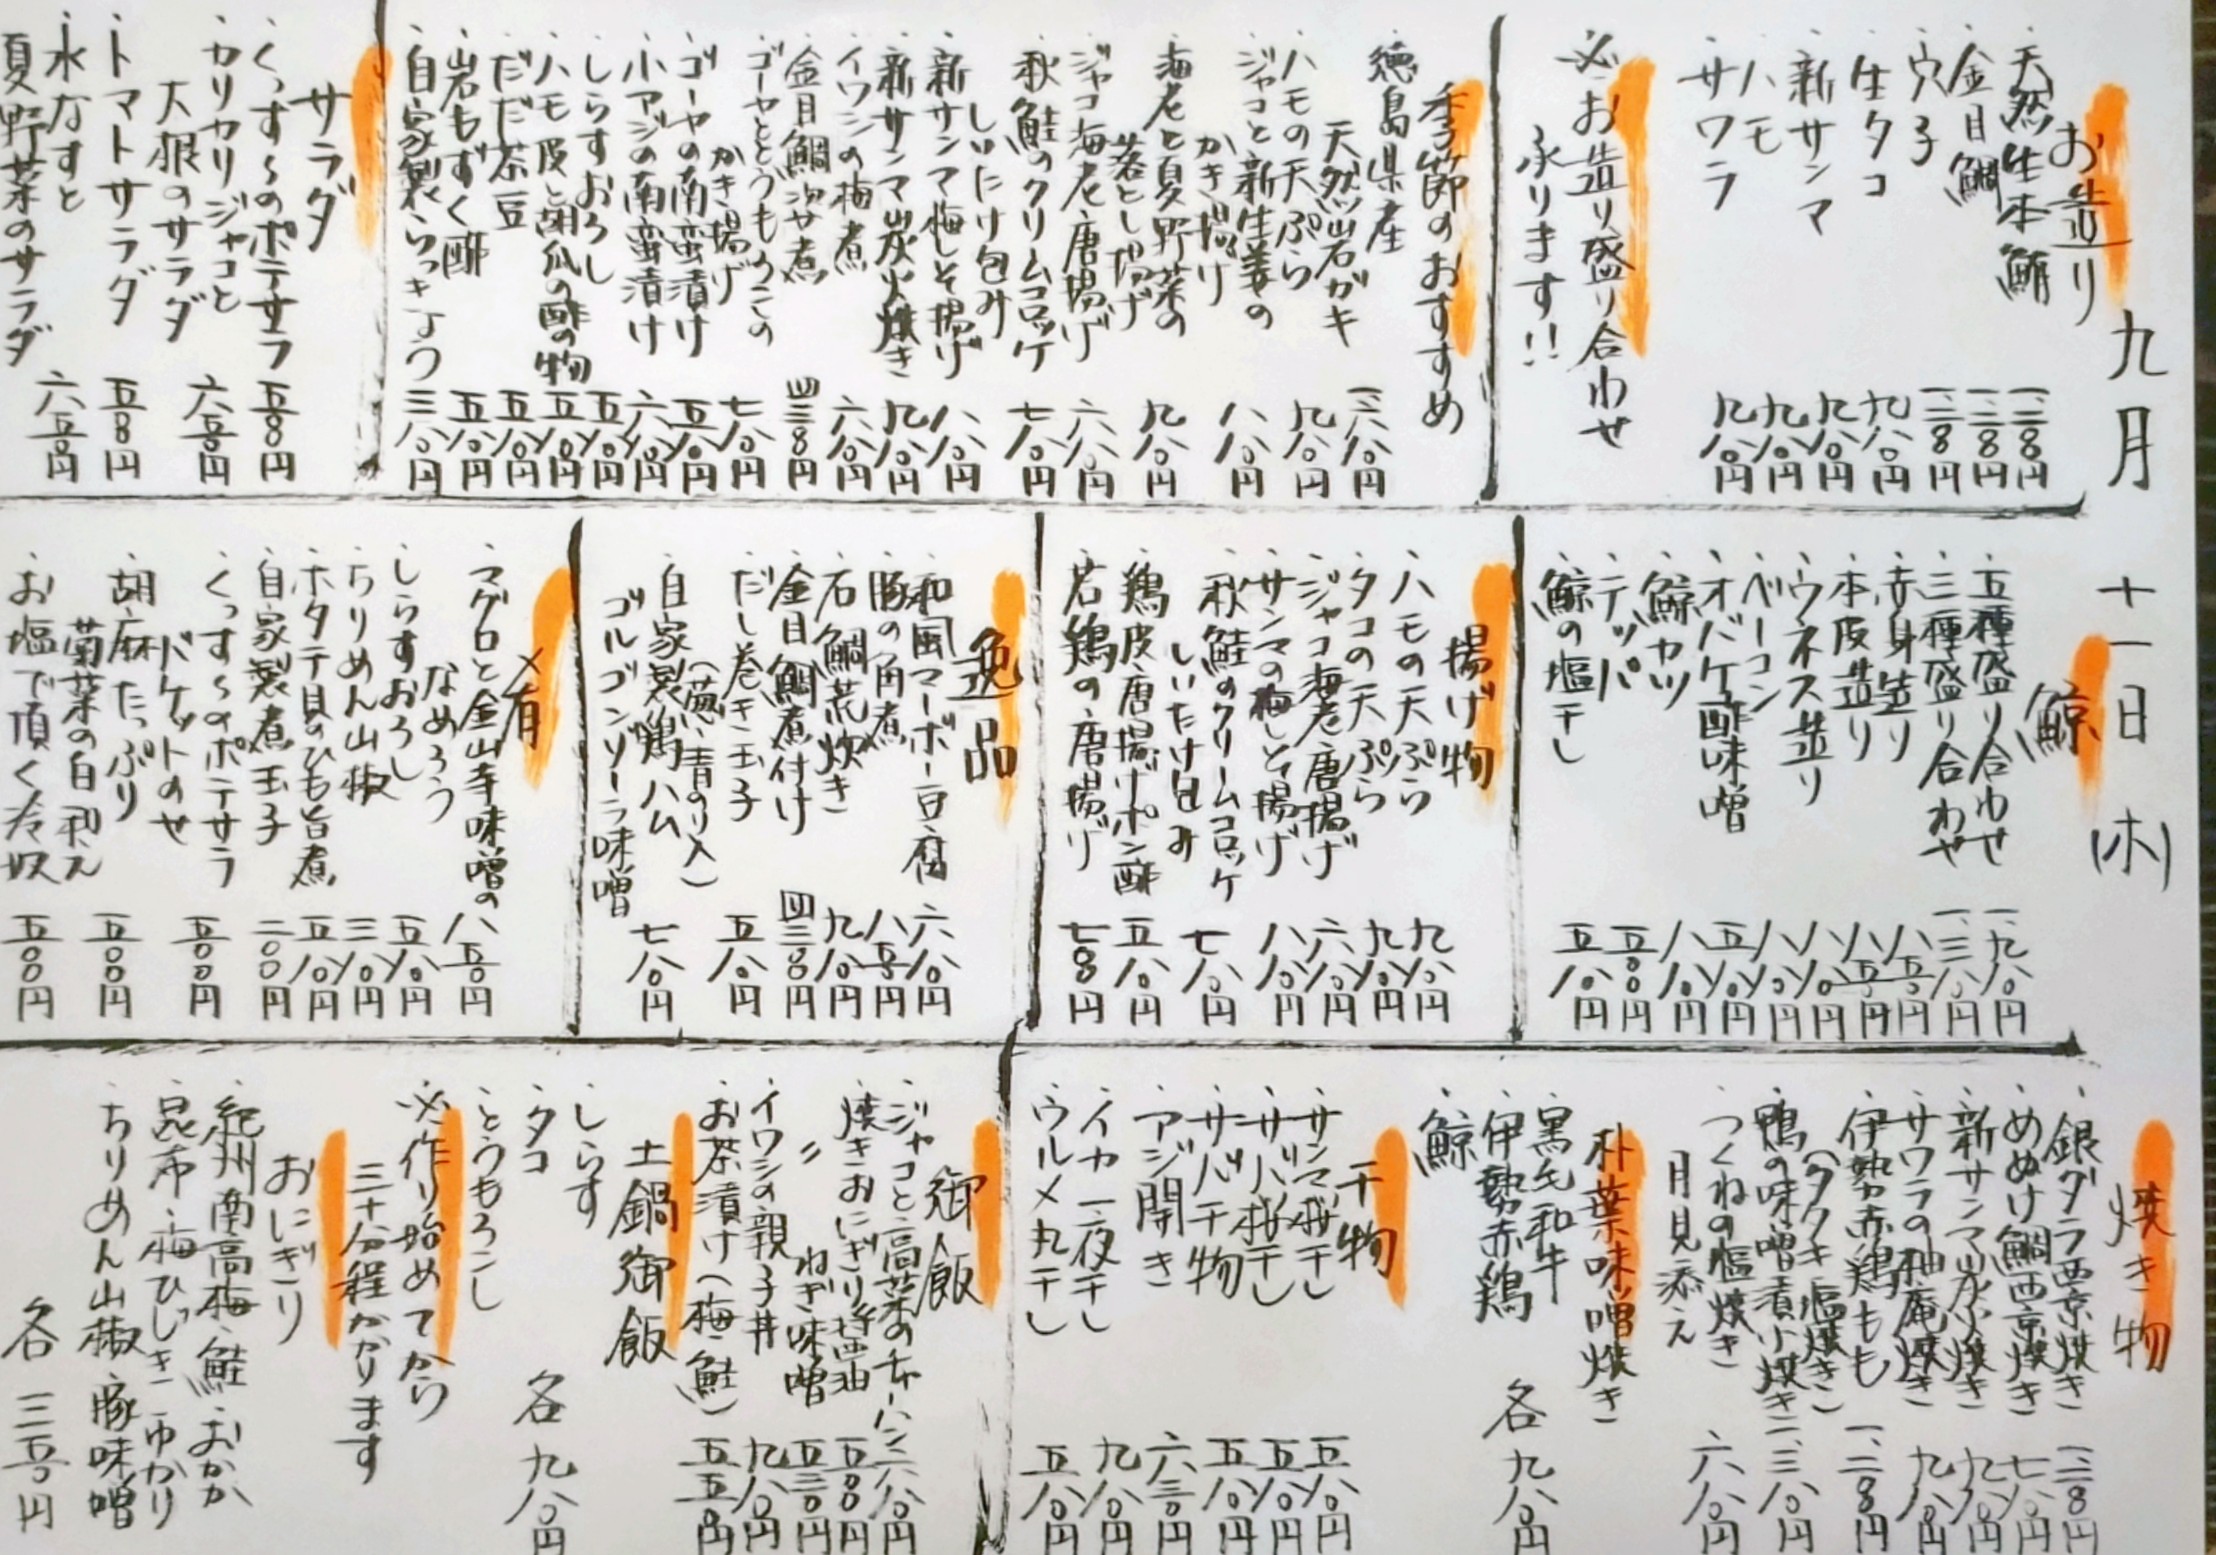 九月十一日(木)
お造り
・天然生本鮪 一、二〇〇円
・金目鯛 一、二〇〇円
・穴子 一、二〇〇円
・生タコ 九八〇円
・新サンマ 九八〇円
・ハモ 九八〇円
・サワラ 九八〇円
※お造り盛り合わせ
承ります!!
季節のおすすめ
・徳島県産
天然岩ガキ 一、六八〇円
・ハモの天ぷら 九八〇円
・ジャコと新生姜の
かき揚げ 八八〇円
・海老と夏野菜の
落とし揚げ 九八〇円
・ジャコ海老唐揚げ 六八〇円
・秋鮭のクリームコロッケ
しいたけ包み 七八〇円
・新サンマ梅しそ揚げ 八八〇円
・新サンマ炭火焼き 九八〇円
・イワシの梅煮 六八〇円
・金目鯛沢煮 四三〇〇円
・ゴーヤととうもろこしの
かき揚げ 七八〇円
・ゴーヤの南蛮漬け 五八〇円
・小アジの南蛮漬け 六八〇円
・しらすおろし 五八〇円
・ハモ皮と胡瓜の酢の物 五八〇円
・だだ茶豆 五八〇円
・岩もずく酢 五八〇円
・自家製らっきょう 三八〇円
サラダ
・くっすぃ〜のポテサラ 五〇〇円
・カリカリジャコと
大根のサラダ 六五〇円
・トマトサラダ 五〇〇円
・水なすと
夏野菜のサラダ 六五〇円
鯨
・五種盛り合わせ 一、九八〇円
・三種盛り合わせ 一、三八〇円
・赤身造り 八五〇円
・本皮造り 八五〇円
・ウネス造り 八八〇円
・ベーコン 八八〇円
・オバケ酢味噌 五八〇円
・鯨カツ 八八〇円
・テッパ 五〇〇円
・鯨の塩干し 五八〇円
揚げ物
・ハモの天ぷら 九八〇円
・タコの天ぷら 九八〇円
・ジャコ海老唐揚げ 六八〇円
・サンマの梅しそ揚げ 八八〇円
・秋鮭のクリームコロッケ
しいたけ包み 七八〇円
・鶏皮唐揚げポン酢 五八〇円
・若鶏の唐揚げ 七〇〇円
逸品
・和風マーボー豆腐 六八〇円
・豚の角煮 八五〇円
・石鯛荒炊き 九八〇円
・金目鯛煮付け 四三〇〇円
・だし巻き玉子
(葱・青のり入) 五八〇円
・自家製鶏ハム
ゴルゴンゾーラ味噌 七八〇円
メ肴
・マグロと金山寺味噌の
なめろう 八五〇円
・しらすおろし 五八〇円
・ちりめん山椒 三八〇円
・ホタテ貝のひも旨煮 五八〇円
・自家製煮玉子 二〇〇円
・くっすぃ〜のポテサラ
バケットのせ 五〇〇円
・胡麻たっぷり
菊菜の白和え 五〇〇円
・お塩で頂く冷奴 五〇〇円
焼き物
・銀ダラ西京焼き 一、二〇〇円
・めぬけ鯛西京焼き 七八〇円
・新サンマ炭火焼き 九八〇円
・サワラの柚庵焼き 九八〇円
・伊勢赤鶏もも
(タタキ・塩焼き) 一、二〇〇円
・鴨の味噌漬け焼き 二、三八〇円
・つくねの塩焼き
月見添え 六八〇円
朴葉味噌焼き
・黒毛和牛
・伊勢赤鶏
・鯨
各 九八〇円
干物
・サンマ桜干し 五八〇円
・サバ桜干し 五八〇円
・サバ干物 五八〇円
・アジ開き 六三〇円
・イカ一夜干し 九八〇円
・ウルメ丸干し 五八〇円
御飯
・ジャコと高菜のチャーハン 六八〇円
・焼きおにぎり 醤油 五〇〇円
〃 ねぎ味噌 五三〇円
・イワシの親子丼 九八〇円
・お茶漬け(梅・鮭) 五五〇円
土鍋御飯
・しらす
・タコ
・とうもろこし
各 九八〇円
※作り始めてから
三十分程かかります
おにぎり
・紀州南高梅・鮭・おかか
・昆布・梅ひじき・ゆかり
・ちりめん山椒・豚味噌
各 二五〇円